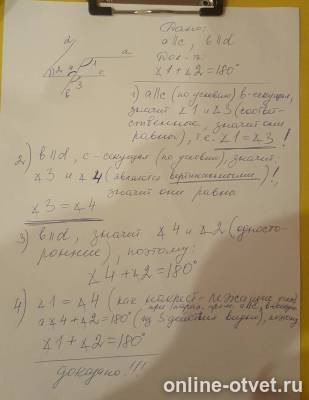 Дано:
a||c, b||d
Док-ть:
∠1+∠2=180°
d
a
1
2 4
c
3
b
1) a||c (по условию) b-секущая,
значит ∠1 и ∠3 (соответ-
ственные, значит они
равны), т.е. ∠1=∠3!
2) b||d, c-секущая (по условию), значит:
∠3 и ∠4 (являются вертикальными)!,
значит они равны
∠3=∠4
3) b||d, значит ∠4 и ∠2 (одосто-
ронние), поэтому:
∠4+∠2=180°
4) ∠1=∠4 (как накрест-лежащие
при прям. a||c,
а ∠4+∠2=180° (из 3 действия видно), поэтому
∠1+∠2=180°
доказано!!!
online-otvet.ru